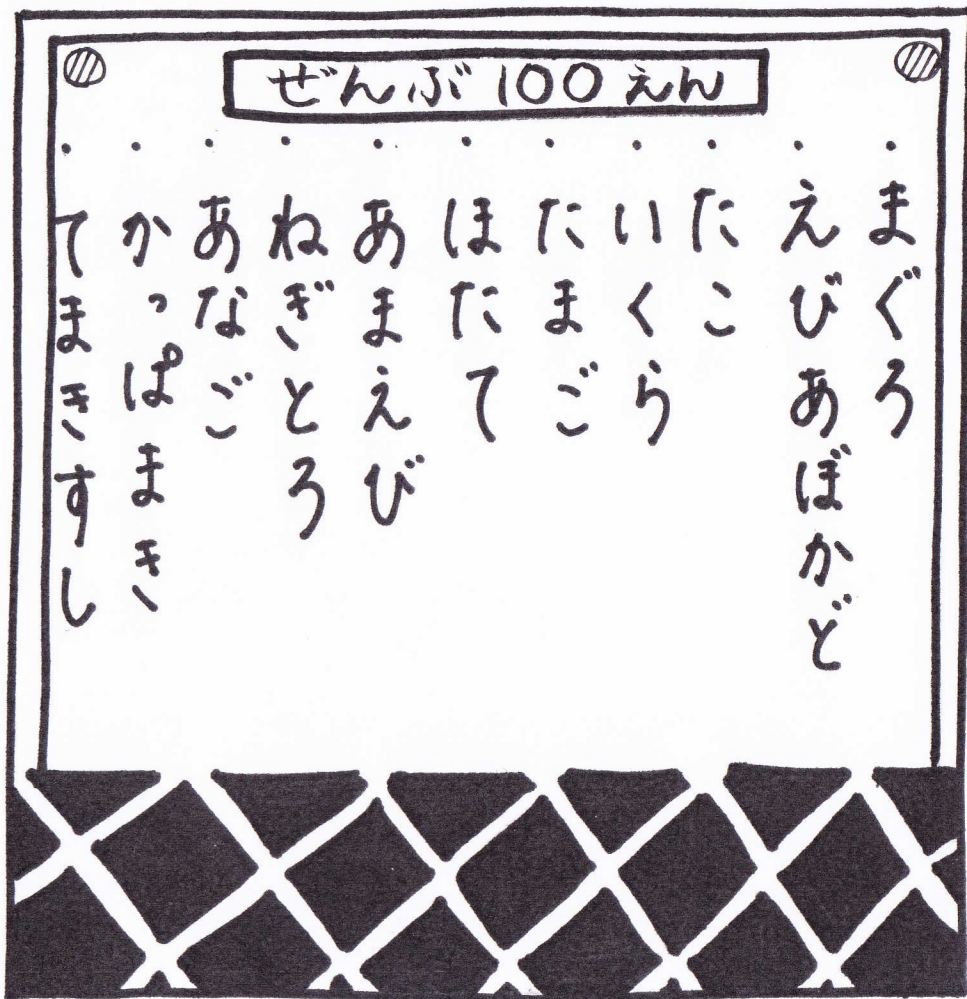 ぜんぶ100えん
・まぐろ
・えびあぼかど
・たこ
・いくら
・たまご
・ほたて
・あまえび
・ねぎとろ
・あなご
・かっぱまき
・てまきすし